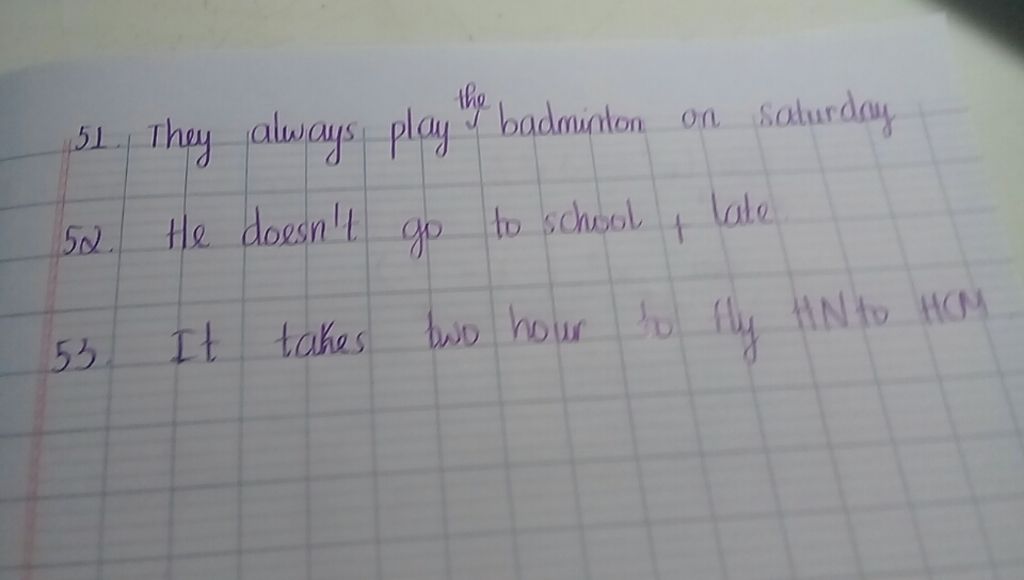 51. They always play the badminton on saturday
52. He doesn't go to school, late
53. It takes two hour to fly HN to HCM